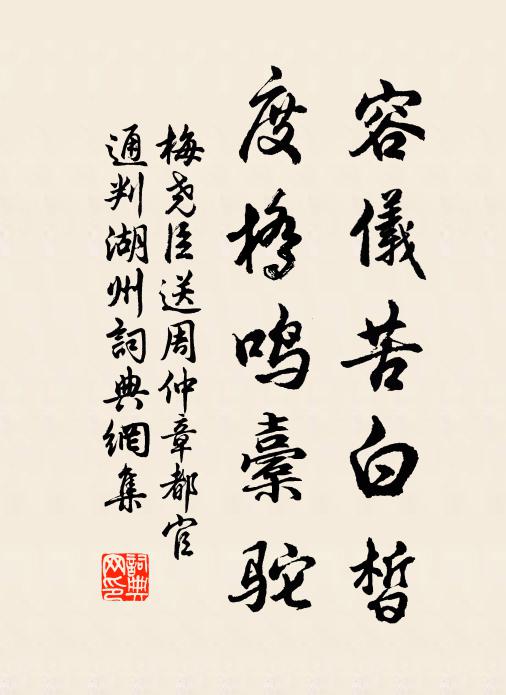 容儀苦白皙
度橋鳴橐駝
梅堯臣送周仲章都官
通判湖州詞典網集
詞典
网印